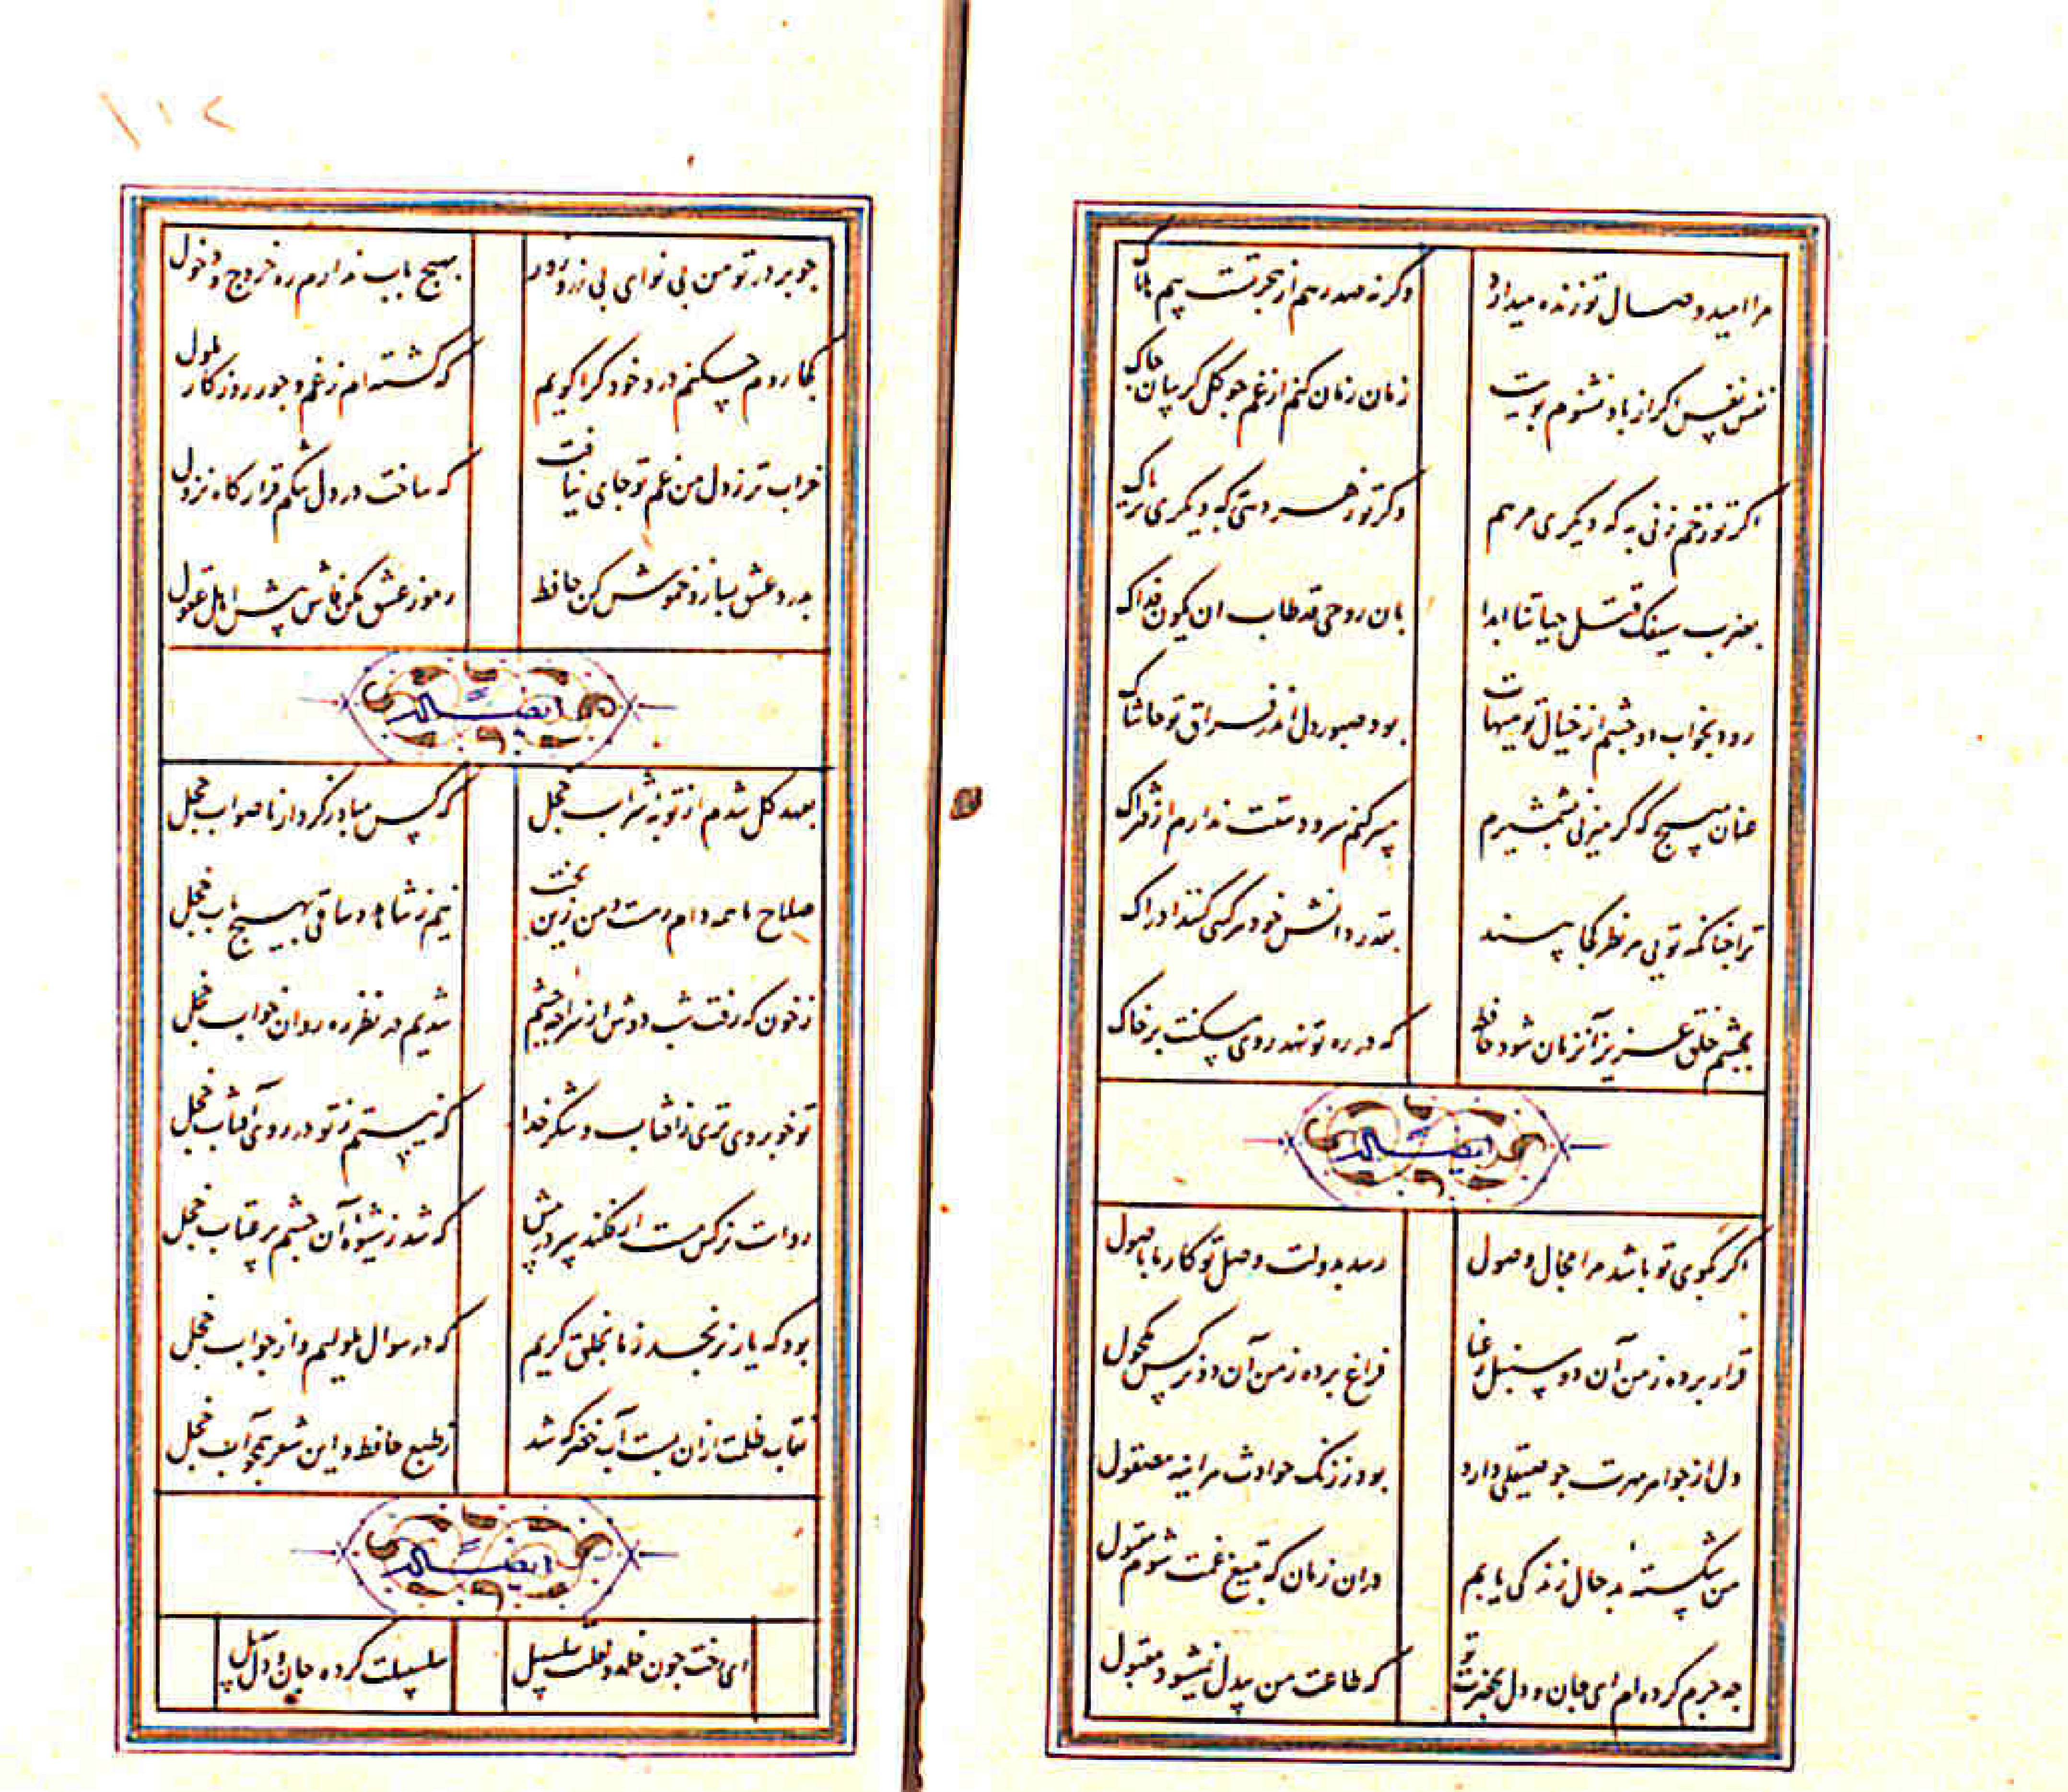 مرا امید وصال تو زنده میدارد وکرنه صد رهم از هجر تست بیم هلاک
نفس نفس اکر از باد نشنوم بویت زمان زمان کنم از غم جو کل کریبان چاک
اکر تو زخم زنی به که دیکری مرهم وکر تو زهر دهی به که دیکری تریاک
بضرب سیفک قتلی حیاتنا ابدا بان روحی قد طاب ان یکون فداک
رود بخواب دو چشم از خیال تو هیهات بود صبور دل اندر فراق تو حاشاک
عنان مپیچ که کر میزنی بشمشیرم سپر کنم سر و دستت ندارم از فتراک
ترا چنانکه تویی هر نظر کجا بیند بقدر دانش خود هر کسی کند ادراک
بچشم خلق عزیز آنزمان شود حافظ که در ره تو نهد روی مسکنت بر خاک
ایضاله
اکر بکوی تو باشد مرا مجال وصول رسد بدولت وصل تو کار ما باصول
قرار برده ز من آن دو سنبل رعنا فراغ برده ز من آن دو نرکس مکحول
دل از جواهر مهرت جو صیقلی دارد بود ز زنک حوادث هر اینه مصقول
من شکسته بد حال زندکی یابم دران زمان که بتیغ غمت شوم مقتول
چه جرم کرده ام ای جان و دل بحضرت تو که طاعت من بیدل نمیشود مقبول
۱۱۲
جو بر در تو من بی نوای بی زر و زور بهیچ باب ندارم ره خروج و دخول
کجا روم چکنم درد خود کرا کویم که کشته ام ز غم و جور روزکار ملول
خراب تر ز دل من غم تو جای نیافت که ساخت در دل تنکم قرارکاه نزول
بدرد عشق بساز و خموش کن حافظ رموز عشق مکن فاش پیش اهل عقول
ایضاله
بعهد کل شدم از توبه شراب خجل که کس مباد ز کردار ناصواب خجل
صلاح ما همه دام رهست و من زین بحث نیم ز شاهد و ساقی بهیچ باب خجل
ز خون که رفت شب دوش از سراچه چشم شدیم در نظر ره روان خواب خجل
تو خوبروی تری ز افتاب و شکر خدا که نیستم ز تو در روی آفتاب خجل
رواست نرکس مست ار فکند سر در پیش که شد ز شیوه آن چشم پر عتاب خجل
بود که یار نرنجد ز ما بخلق کریم که در سوال ملولیم و از جواب خجل
نقاب ظلمت ازان بست آب خضر که شد ز طبع حافظ و این شعر همچو آب خجل
ایضاله
ای رخت جون خلد و لعلت سلسبیل سلسبیلت کرده جان و دل سبیل